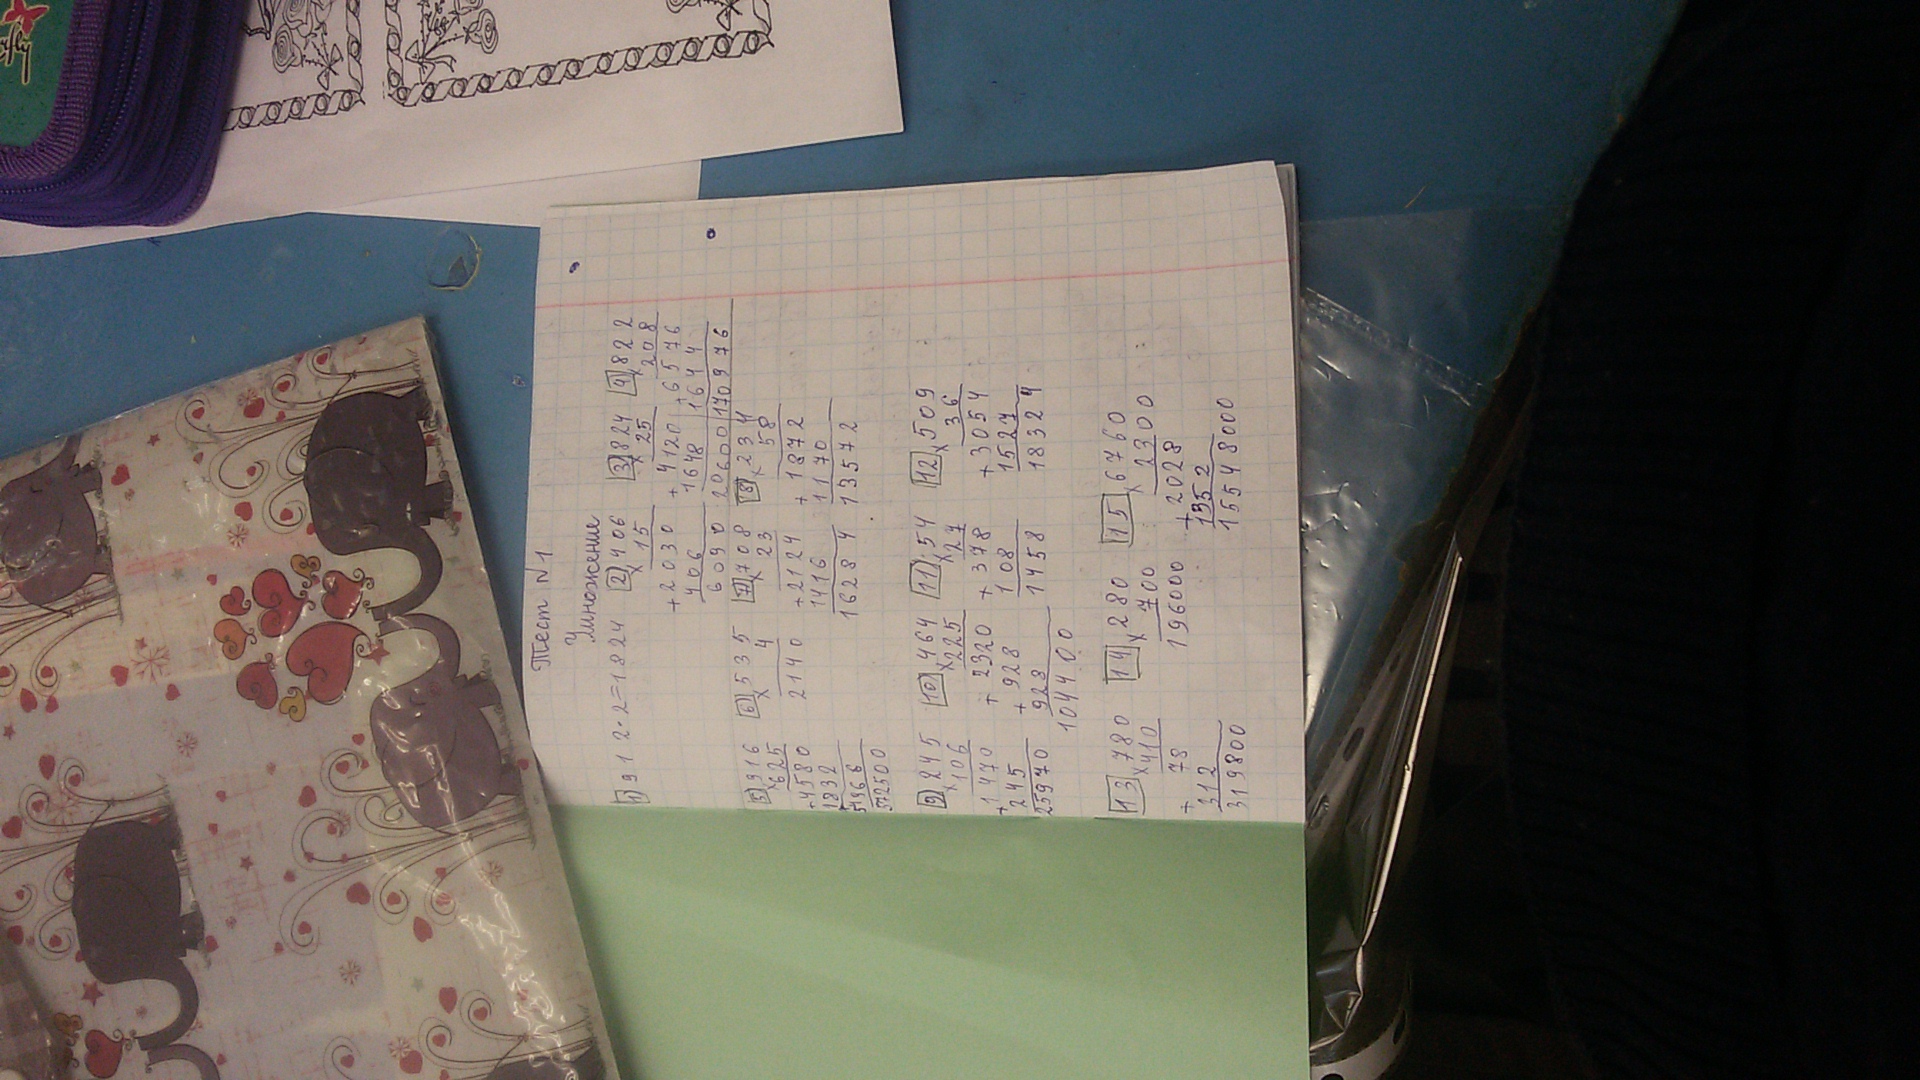 Тест N1
Умножение
1) 912·2=1824 2) 406 3) 824 4) 822
×15 ×25 ×208
+2030 +4120 +6576
406 1648 1644
6090 20600 170976
5) 916 6) 535 7) 708 8) 234
×625 ×4 ×23 ×58
+4580 2140 +2124 +1872
1832 1416 1170
5496 16284 13572
572500
9) 245 10) 464 11) 54 12) 509
×106 ×225 ×27 ×36
+1470 +2320 +378 +3054
245 +928 108 1527
25970 928 1458 18324
104400
13) 780 14) 280 15) 6760
×410 ×700 ×2300
78 196000 +2028
+312 1352
319800 15548000